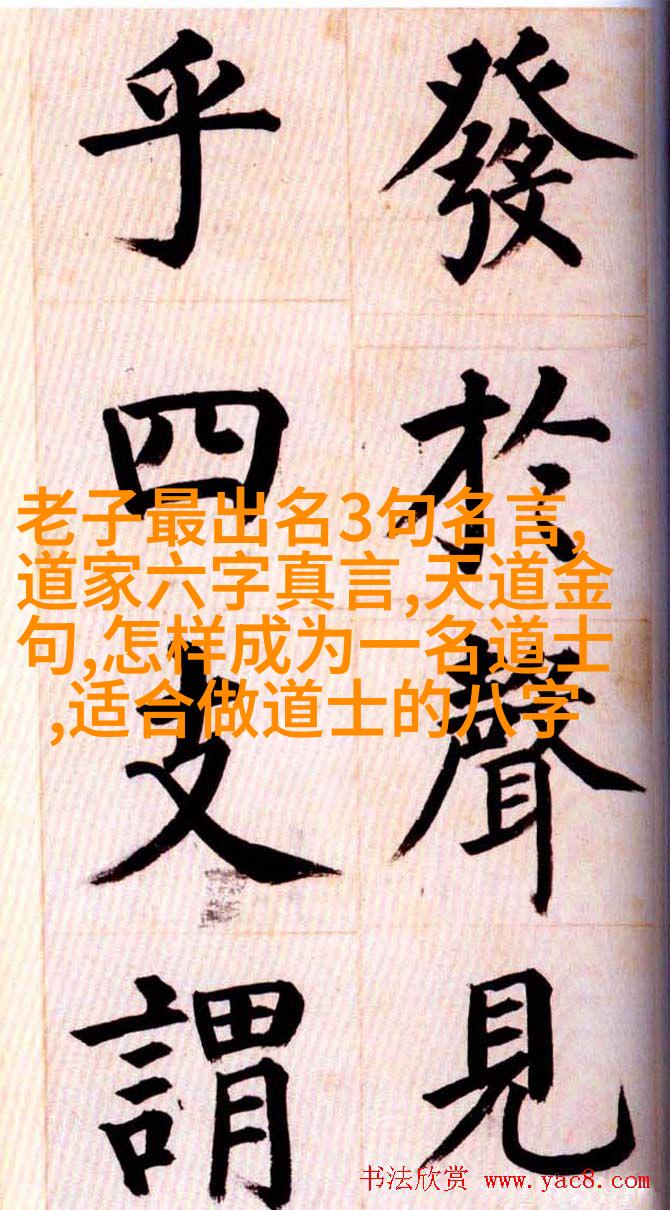 發於聲見
乎四支謂
老子最出名3句名言,
道家六字真言,天道金
句,怎样成为一名道士
,适合做道士的八字
书法欣赏 www.yac8.com